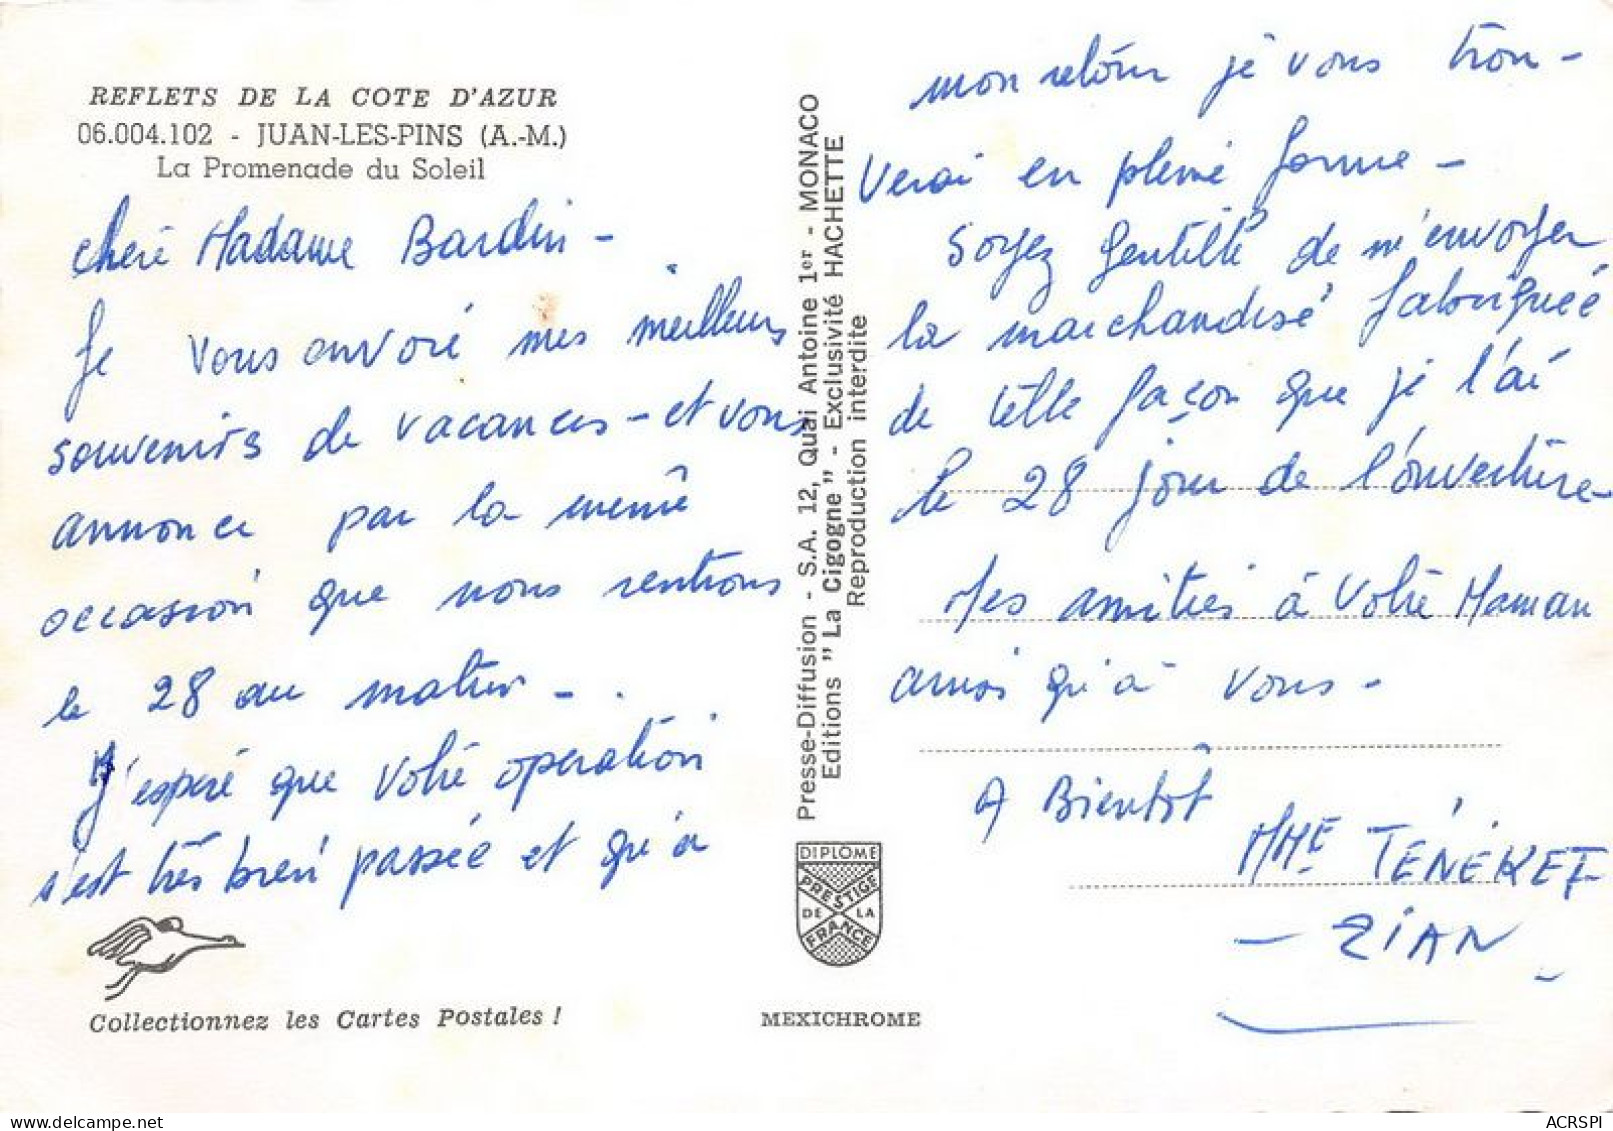 REFLETS DE LA COTE D'AZUR
06.004.102 - JUAN-LES-PINS (A.-M.)
La Promenade du Soleil
chère Madame Bardin -
Je vous envoie mes meilleurs
souvenirs de vacances - et vous
annonce par la même
occasion que nous rentrons
le 28 au matin - .
J'espère que votre operation
s'est très bien passée et qu'à
Collectionnez les Cartes Postales !
Presse-Diffusion - S.A. 12, Quai Antoine 1er - MONACO
Editions " La Cigogne " - Exclusivité HACHETTE
Reproduction interdite
DIPLOME
PRESTIGE
DE LA
FRANCE
MEXICHROME
mon retour je vous trou-
verai en pleine forme -
Soyez gentille de m'envoyer
la marchandise fabriquée
de telle façon que je l'ai
le 28 jour de l'ouverture -
Mes amitiés à votre Maman
ainsi qu'à vous -
A Bientôt
MME TÉNÉKET
- ZIAN -
delcampe.net
ACRSPI